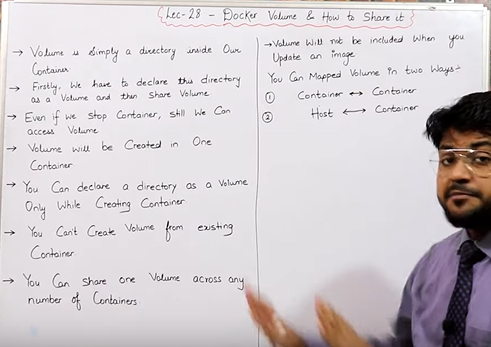 Lec-28 - Docker Volume & How to Share it
→ Volume is Simply a directory inside Our
Container
→ Firstly, We have to declare this directory
as a Volume and then Share Volume
→ Even if we Stop Container, Still We Can
access Volume
→ Volume will be Created in One
Container
→ You Can declare a directory as a Volume
Only While Creating Container
→ You Cant Create Volume from existing
Container
→ You Can Share one Volume across any
number of Containers
→ Volume Will not be included When you
Update an image
You Can Mapped Volume in two Ways:-
① Container ↔ Container
② Host ↔ Container